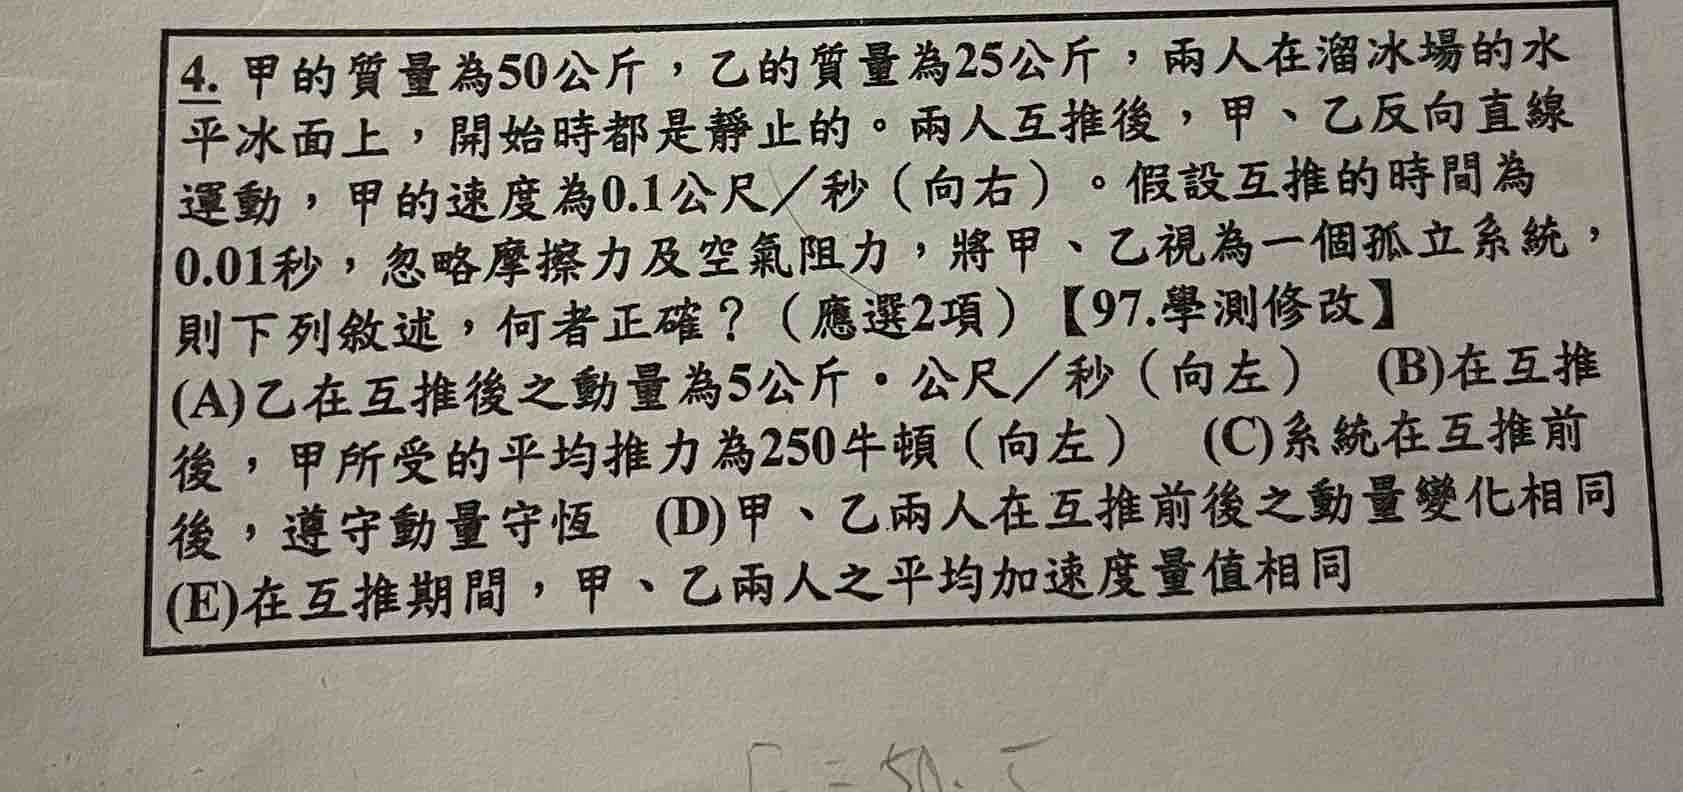 4. 甲的質量為50公斤，乙的質量為25公斤，兩人在溜冰場的水
平冰面上，開始時都是靜止的。兩人互推後，甲、乙反向直線
運動，甲的速度為0.1公尺／秒（向右）。假設互推的時間為
0.01秒，忽略摩擦力及空氣阻力，將甲、乙視為一個孤立系統，
則下列敘述，何者正確？（應選2項）【97.學測修改】
(A)乙在互推後之動量為5公斤・公尺／秒（向左） (B)在互推
後，甲所受的平均推力為250牛頓（向左） (C)系統在互推前
後，遵守動量守恆 (D)甲、乙兩人在互推前後之動量變化相同
(E)在互推期間，甲、乙兩人之平均加速度量值相同